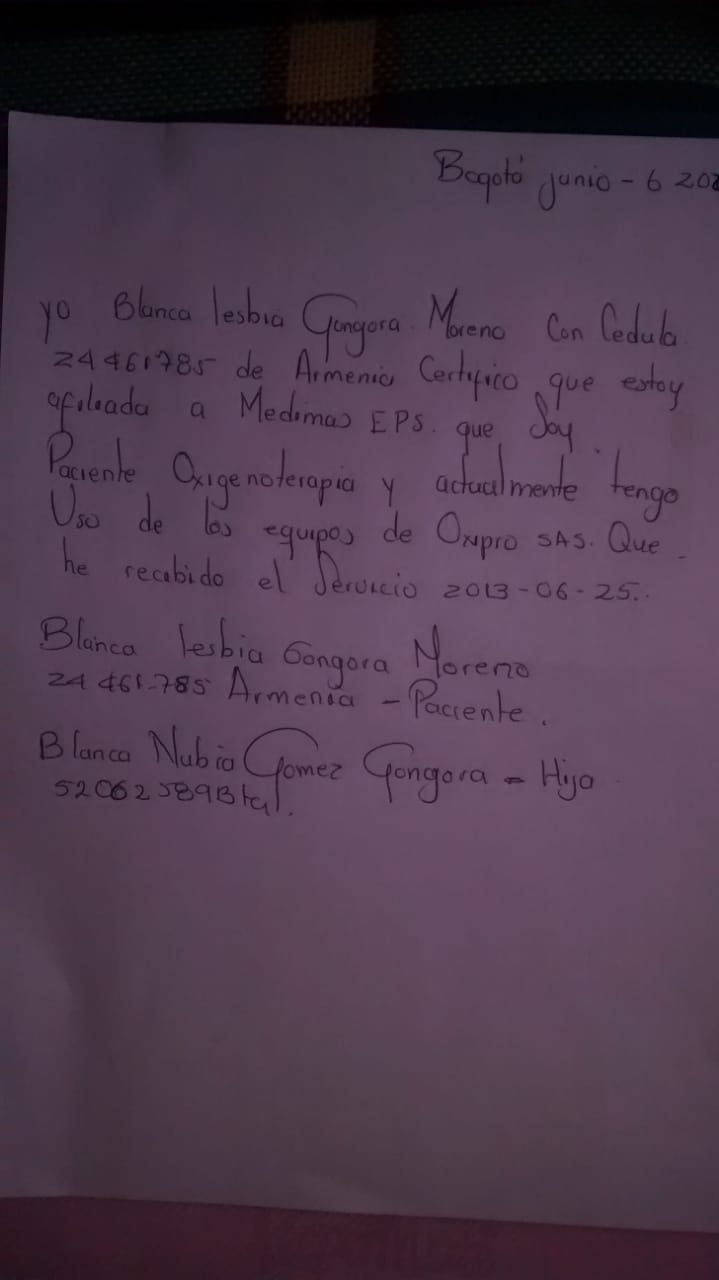 Bogotá junio - 6 202
yo Blanca lesbia Gongora Moreno Con Cedula
24461785 de Armenia Certifico que estoy
afiliada a Medimas EPS. que Soy
Paciente Oxigenoterapia y actualmente tengo
Uso de los equipos de Oxipro SAS. Que
he recibido el Servicio 2013-06-25.
Blanca lesbia Gongora Moreno
24 461-785 Armenia - Paciente.
Blanca Nubia Gomez Gongora = Hija
52062589 Btal.